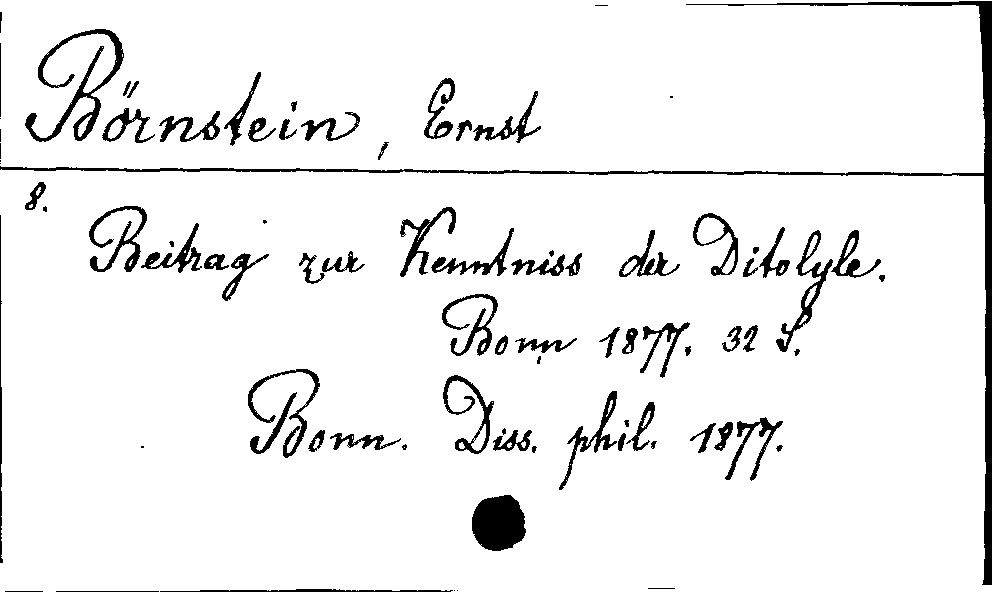 Börnstein, Ernst
8.
Beitrag zur Kenntniss der Ditolyle.
Bonn 1877. 32 S.
Bonn. Diss. phil. 1877.